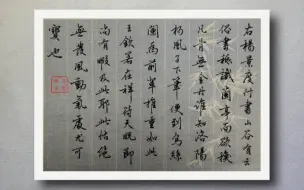 右楊景度行書山谷有云
俗書祇識蘭亭面欲換
凡骨無金丹誰知洛陽
楊風子下筆便到烏絲
闌為前輩推重如此
王欽若在祥符天
尚有暇及此耶
無風動氣度尤可
寶也